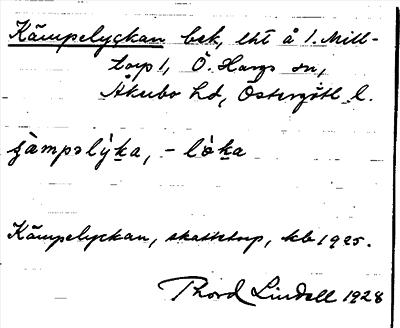 Kämpelyckan bek, lht å 1. Mill-
torp 1, Ö. Hargs sn,
Åkerbo hd, Östergötl l.
-lo̊ka
Kämpelyckan, skattetorp, kb 1925.
Thord Lindell 1928